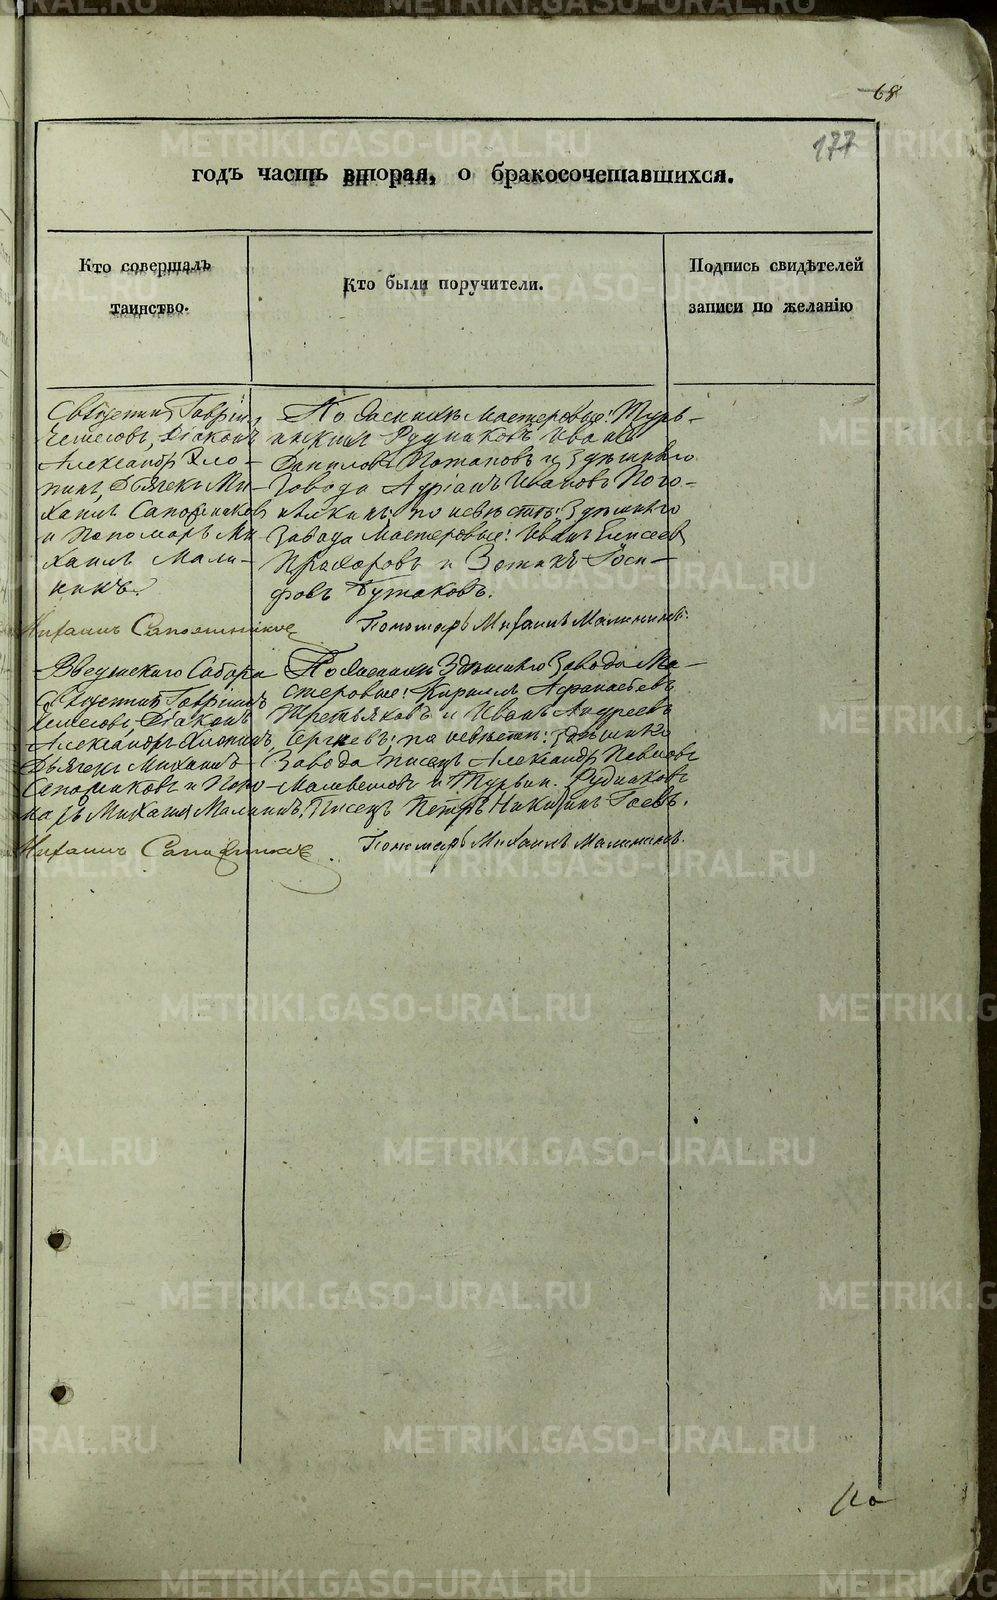 68
177
годъ часть вторая, о бракосочетавшихся.
Кто совершалъ
таинство.
Кто были поручители.
Подпись свидѣтелей
записи по желанію
Свѧщенник Гаврiилъ
Діаконъ
Александръ Хло-
пинъ, Дьячекъ Ми-
хаилъ Сапожниковъ
и Пономарь Ми-
хаилъ Мали-
нинъ.
По женихѣ мастеровые: Турь-
инскихъ Рудниковъ Иванъ
Даниловъ Потаповъ и здѣшняго
Завода Адріанъ Ивановъ Пого-
рѣлкинъ; по невѣстѣ: Здѣшняго
Завода Мастеровые: Иванъ Елисеев
Прохоровъ и Зотикъ Іоси-
фовъ Бутаковъ.
Михаилъ Сапожников
Пономарь Михаилъ Малининъ.
Введенскаго Собора
Священникъ Гаврiилъ
Діаконъ
Александръ Хлопинъ,
Дьячекъ Михаилъ
Сапожниковъ и Поно-
марь Михаилъ Малининъ.
По женихѣ Здѣшняго Завода Ма-
стеровые: Кириллъ Афанасьевъ
Третьяковъ и Иванъ Андреевъ
Сергѣевъ; по невѣстѣ: здѣшняго
Завода писецъ Александръ Павловъ
и Турьин. Рудниковъ
Писецъ Петръ Никитинъ Гаевъ.
Михаилъ Сапожников
Пономарь Михаилъ Малининъ.
METRIKI.GASO-URAL.RU